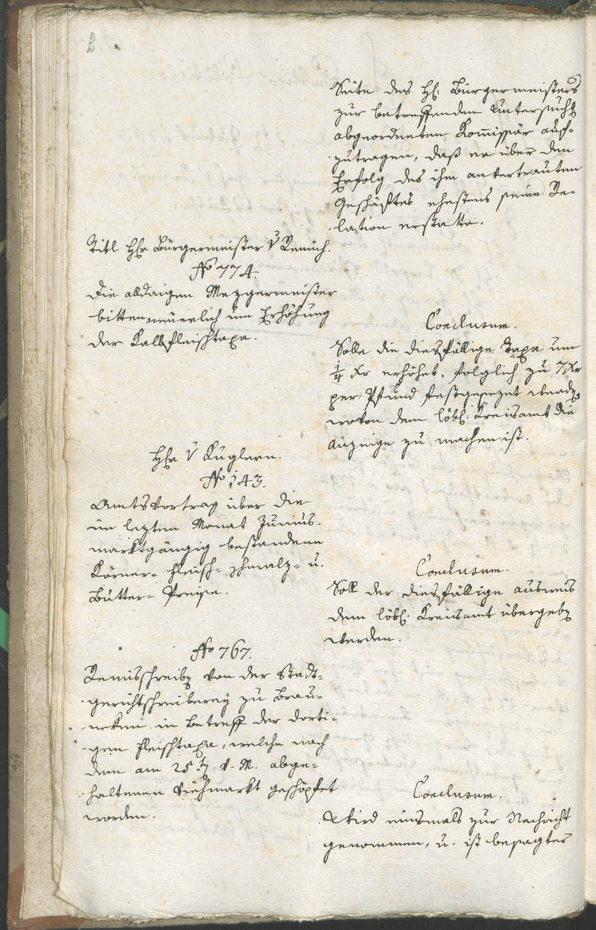 2.
Seite des H: Bürgermeisters
zur betreffenden Untersuchg
abgeordneten Kommissär auf-
zutragen, daß er über den
Erfolg des ihm anvertrauten
Geschäftes ehestens seine Re-
lation erstatte.
Titl Hr Bürgermeister v Remich.
No 774.
Die alldaigen Mezgermeister
bitten neüerlich um Erhöhung
der Kalbfleischtaxa.
Conclusum.
Solle die diesfällige Taxa um
1/4 Xr erhöhet, folglich zu 7 Xr
per: Pfund festgesezet werdn
wovon dem löbl: Kreisamt die
Anzeige zu machen ist.
Hr v Kuglern.
No 143.
Amtsvortrag über die
im lezten Monat Junius
marktgängig bestandene
Körner- Fleisch- Schmalz- u.
Butter- Preise.
Conclusum.
Soll der diesfällige ausweis
dem löbl: Kreisamt übergebn
werden.
No 767.
Remisschreibn von der Stadt-
gerichtschreiberey zu Brau-
nau in Betreff der dorti-
gen Fleischtaxa, welche nach
dem am 25t v. M. abge-
haltenen Viehmarkt geschöpfet
worden.
Conclusum.
Wird einsmals zur Nachricht
genommen, u. ist besagter